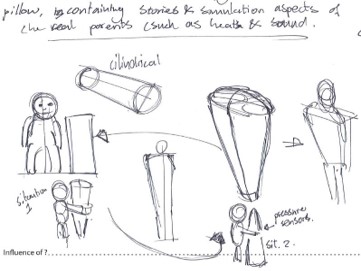 pillow, by containing stories & simulation aspects of
the real parents (such as heath & sound.
cilindrical
situation
1
pressure
sensors.
sit. 2.
Influence of ?